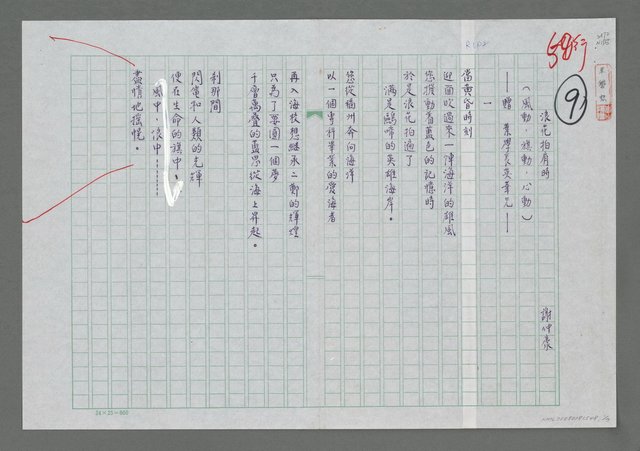 浪花拍肩時
謝仲豪
（風動，旗動，心動）
——贈 葉學長英華兄——
一
當黃昏時刻
迎面吹過來一陣海洋的雄風
您推動着藍色的記憶時
於是浪花拍過了
滿是鷗啼的英雄海岸。
您從福州奔向海洋
以一個專科畢業的愛海者
再入海校想繼承二鄭的輝煌
只為了要圓一個夢
千層萬疊的靈思從海上昇起。
剎那間
閃電和人類的光輝
便在生命的旗中，
風中，浪中，
盡情地搖幌。
9
24×25=600